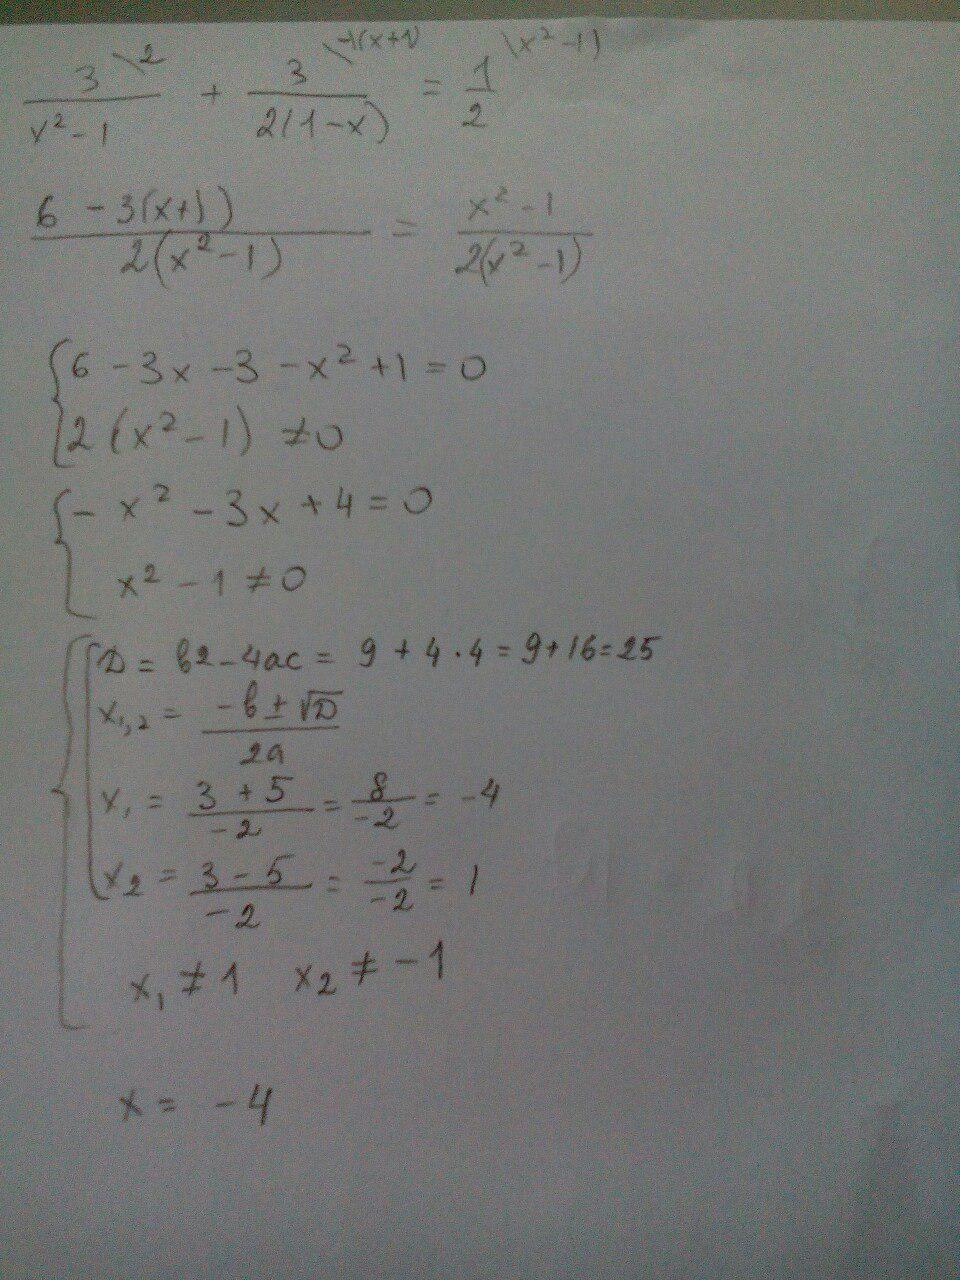 3\2/(x² - 1) + 3\-1(x+1)/(2(1-x)) = 1\(x²-1)/2
(6 - 3(x+1))/(2(x²-1)) = (x²-1)/(2(x²-1))
{ 6 - 3x - 3 - x² + 1 = 0
2(x²-1) ≠ 0
{ - x² - 3x + 4 = 0
x² - 1 ≠ 0
{ [ D = b2 - 4ac = 9 + 4·4 = 9+16=25
x₁,₂ = (-b ± √D)/(2a)
x₁ = (3+5)/(-2) = 8/(-2) = -4
x₂ = (3-5)/(-2) = (-2)/(-2) = 1
x₁ ≠ 1 x₂ ≠ -1
x = -4